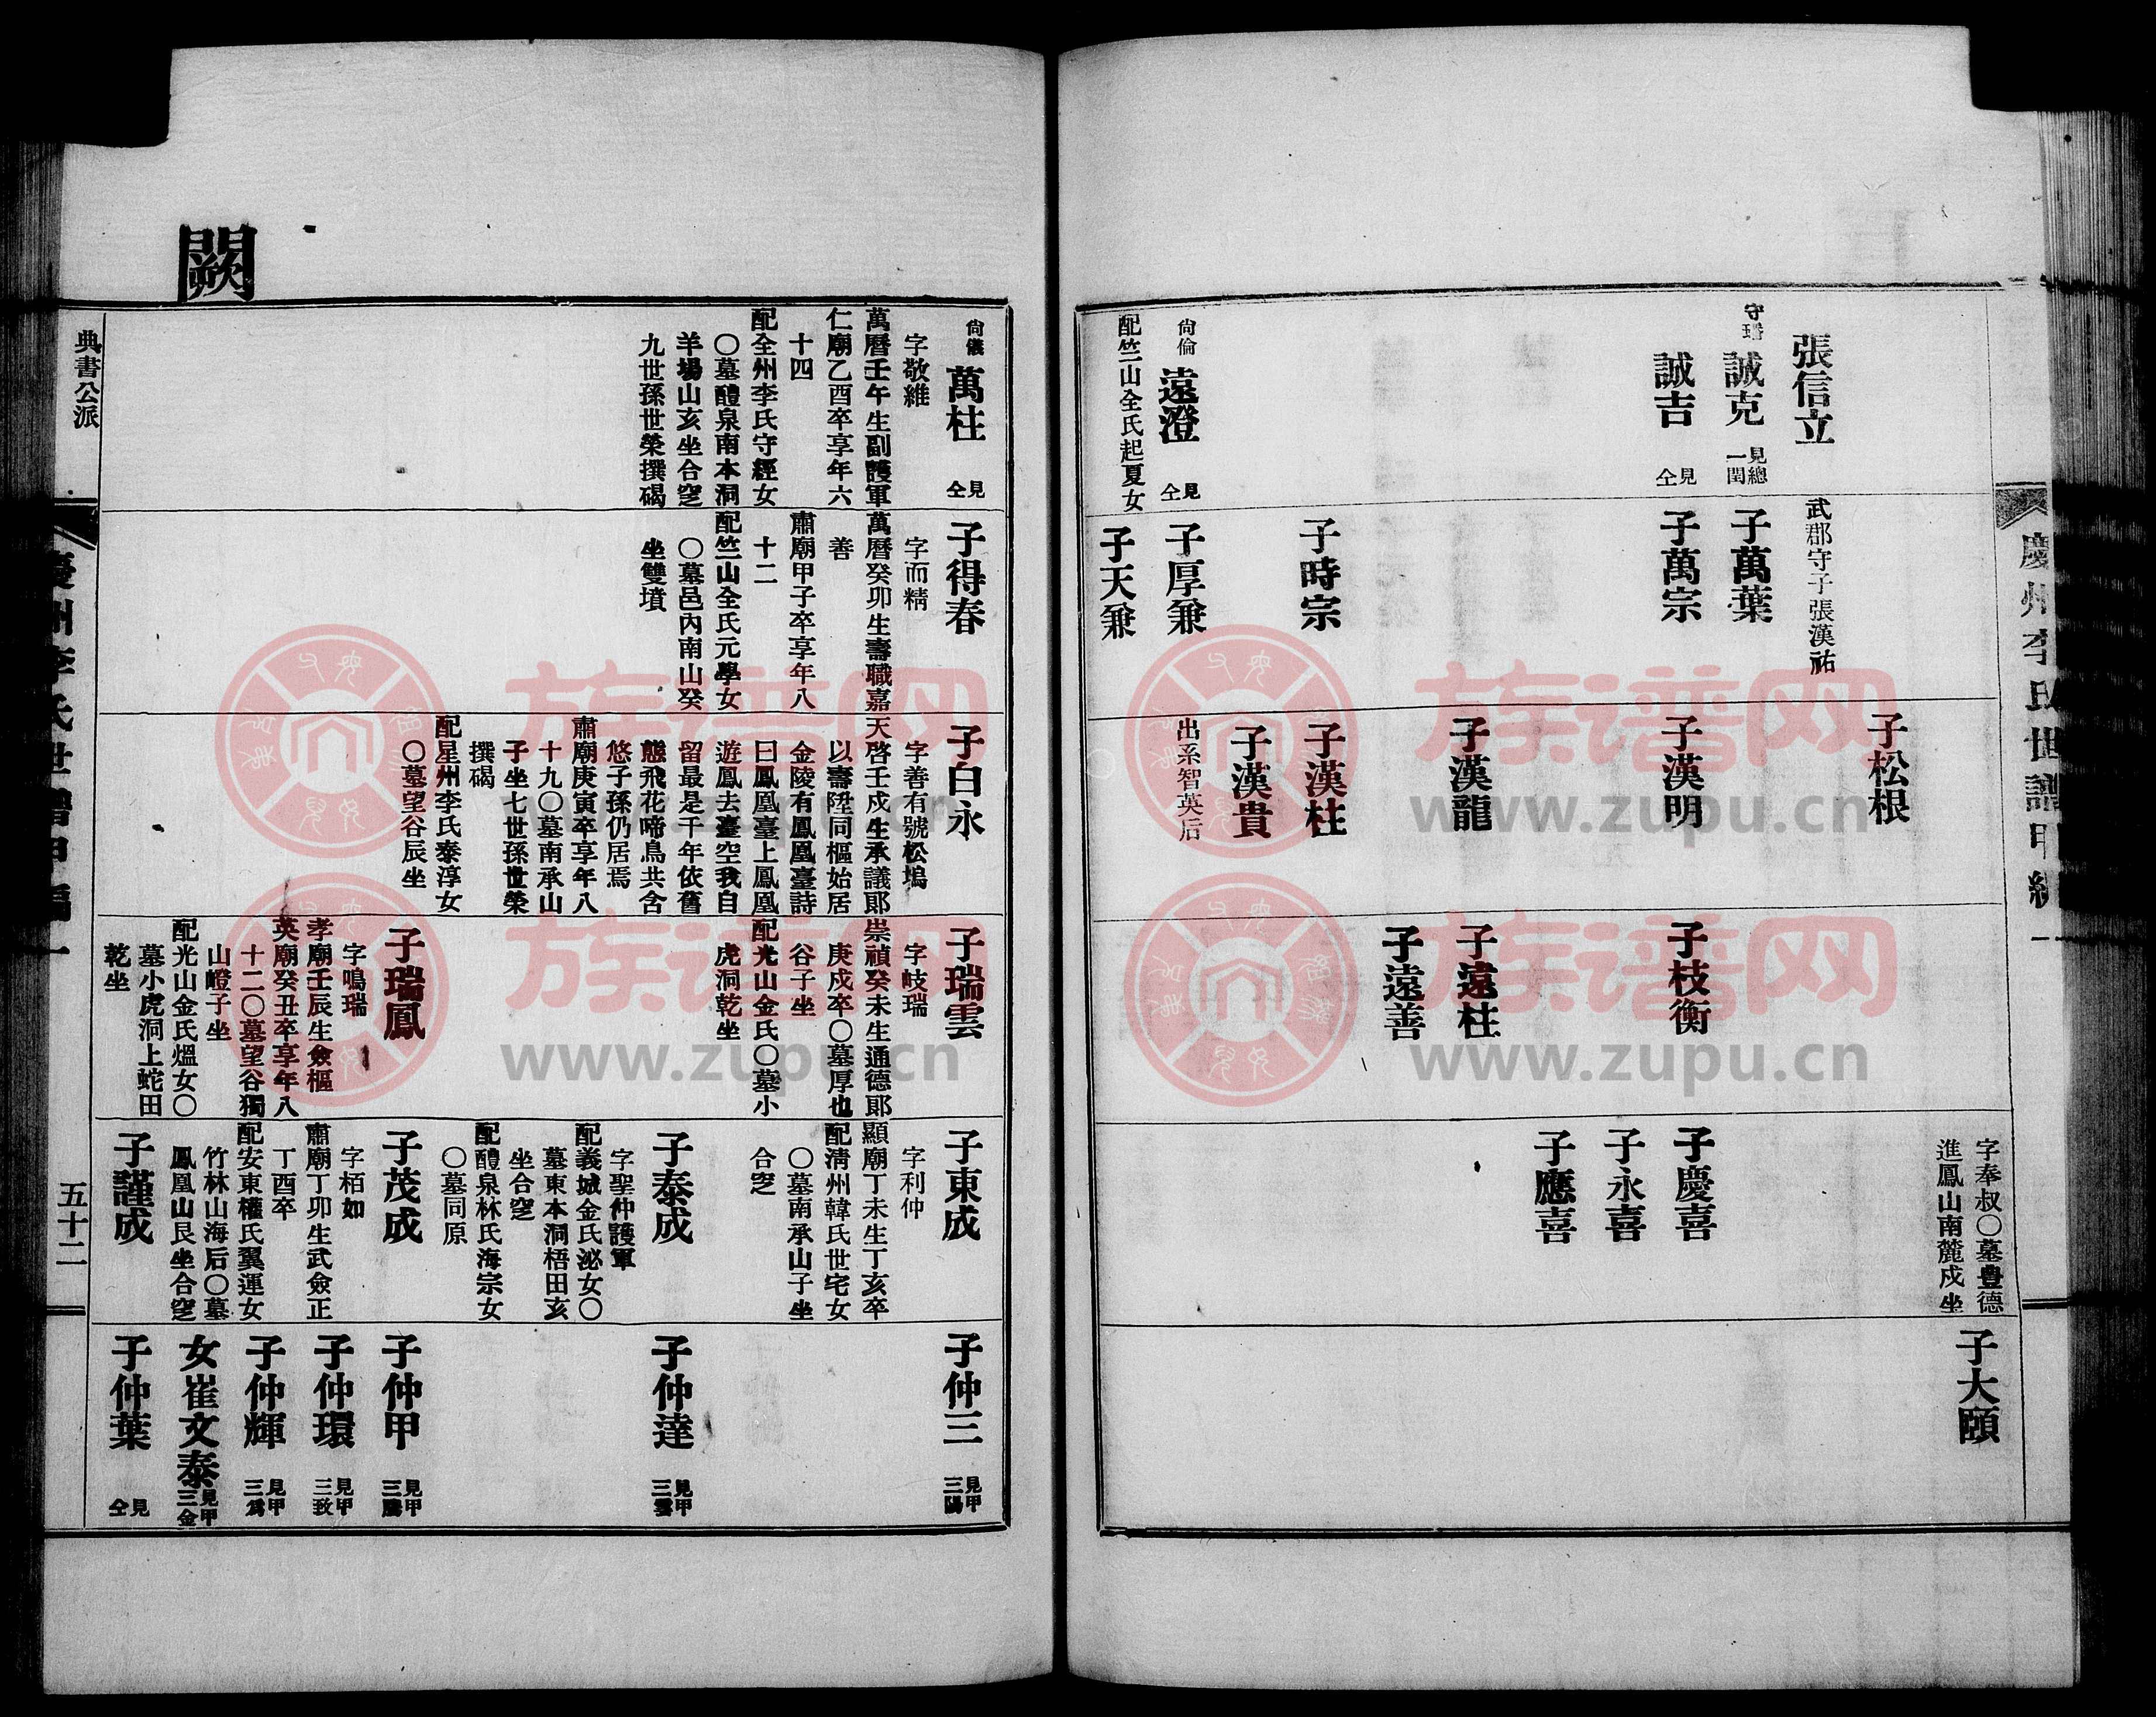 慶州李氏世譜甲編一
張信立
守璠
誠克
見總
一閏
誠吉
見仝
尙倫
遠澄
見仝
配竺山全氏起夏女
武郡守子張漢祐
子萬葉
子萬宗
子時宗
子厚兼
子天兼
子松根
子漢明
子漢龍
子漢柱
子漢貴
出系智英后
子枝衡
子遠柱
子遠善
字奉叔〇墓豊德
進鳳山南麓戍坐
子慶喜
子永喜
子應喜
子大頤
闕
尙儀
萬柱
見仝
字敬維
萬曆壬午生副護軍
仁廟乙酉卒享年六
十四
配全州李氏守經女
〇墓醴泉南本洞
羊場山亥坐合窆
九世孫世榮撰碣
子得春
字而精
萬曆癸卯生壽職嘉
善
肅廟甲子卒享年八
十二
配竺山全氏元學女
〇墓邑內南山癸
坐雙墳
子白永
字善有號松塢
天啓壬戍生承議郞
以壽陞同樞始居
金陵有鳳凰臺詩
曰鳳凰臺上鳳凰
遊鳳去臺空我自
留最是千年依舊
態飛花啼鳥共含
悠子孫仍居焉
肅廟庚寅卒享年八
十九〇墓南承山
子坐七世孫世榮
撰碣
配星州李氏泰淳女
〇墓望谷辰坐
子瑞雲
字岐瑞
崇禎癸未生通德郞
庚戍卒〇墓厚也
谷子坐
配光山金氏〇墓小
虎洞乾坐
子瑞鳳
字鳴瑞
孝廟壬辰生僉樞
英廟癸丑卒享年八
十二〇墓望谷獨
山嶝子坐
配光山金氏熅女〇
墓小虎洞上蛇田
乾坐
子東成
字利仲
顯廟丁未生丁亥卒
配淸州韓氏世宅女
〇墓南承山子坐
合窆
子泰成
字聖仲護軍
配義城金氏泌女〇
墓東本洞梧田亥
坐合窆
配醴泉林氏海宗女
〇墓同原
子茂成
字栢如
肅廟丁卯生武僉正
丁酉卒
配安東權氏翼運女
竹林山海后〇墓
鳳凰山艮坐合窆
子謹成
子仲三
見甲
三陽
子仲達
見甲
三雲
子仲甲
見甲
三騰
子仲環
見甲
三致
子仲輝
見甲
三爲
女崔文泰
見甲
三金
子仲葉
見仝
典書公派
慶州李氏世譜甲編一
五十二
族谱网
www.zupu.cn
族谱网
www.zupu.cn
族谱网
www.zupu.cn
族谱网
www.zupu.cn